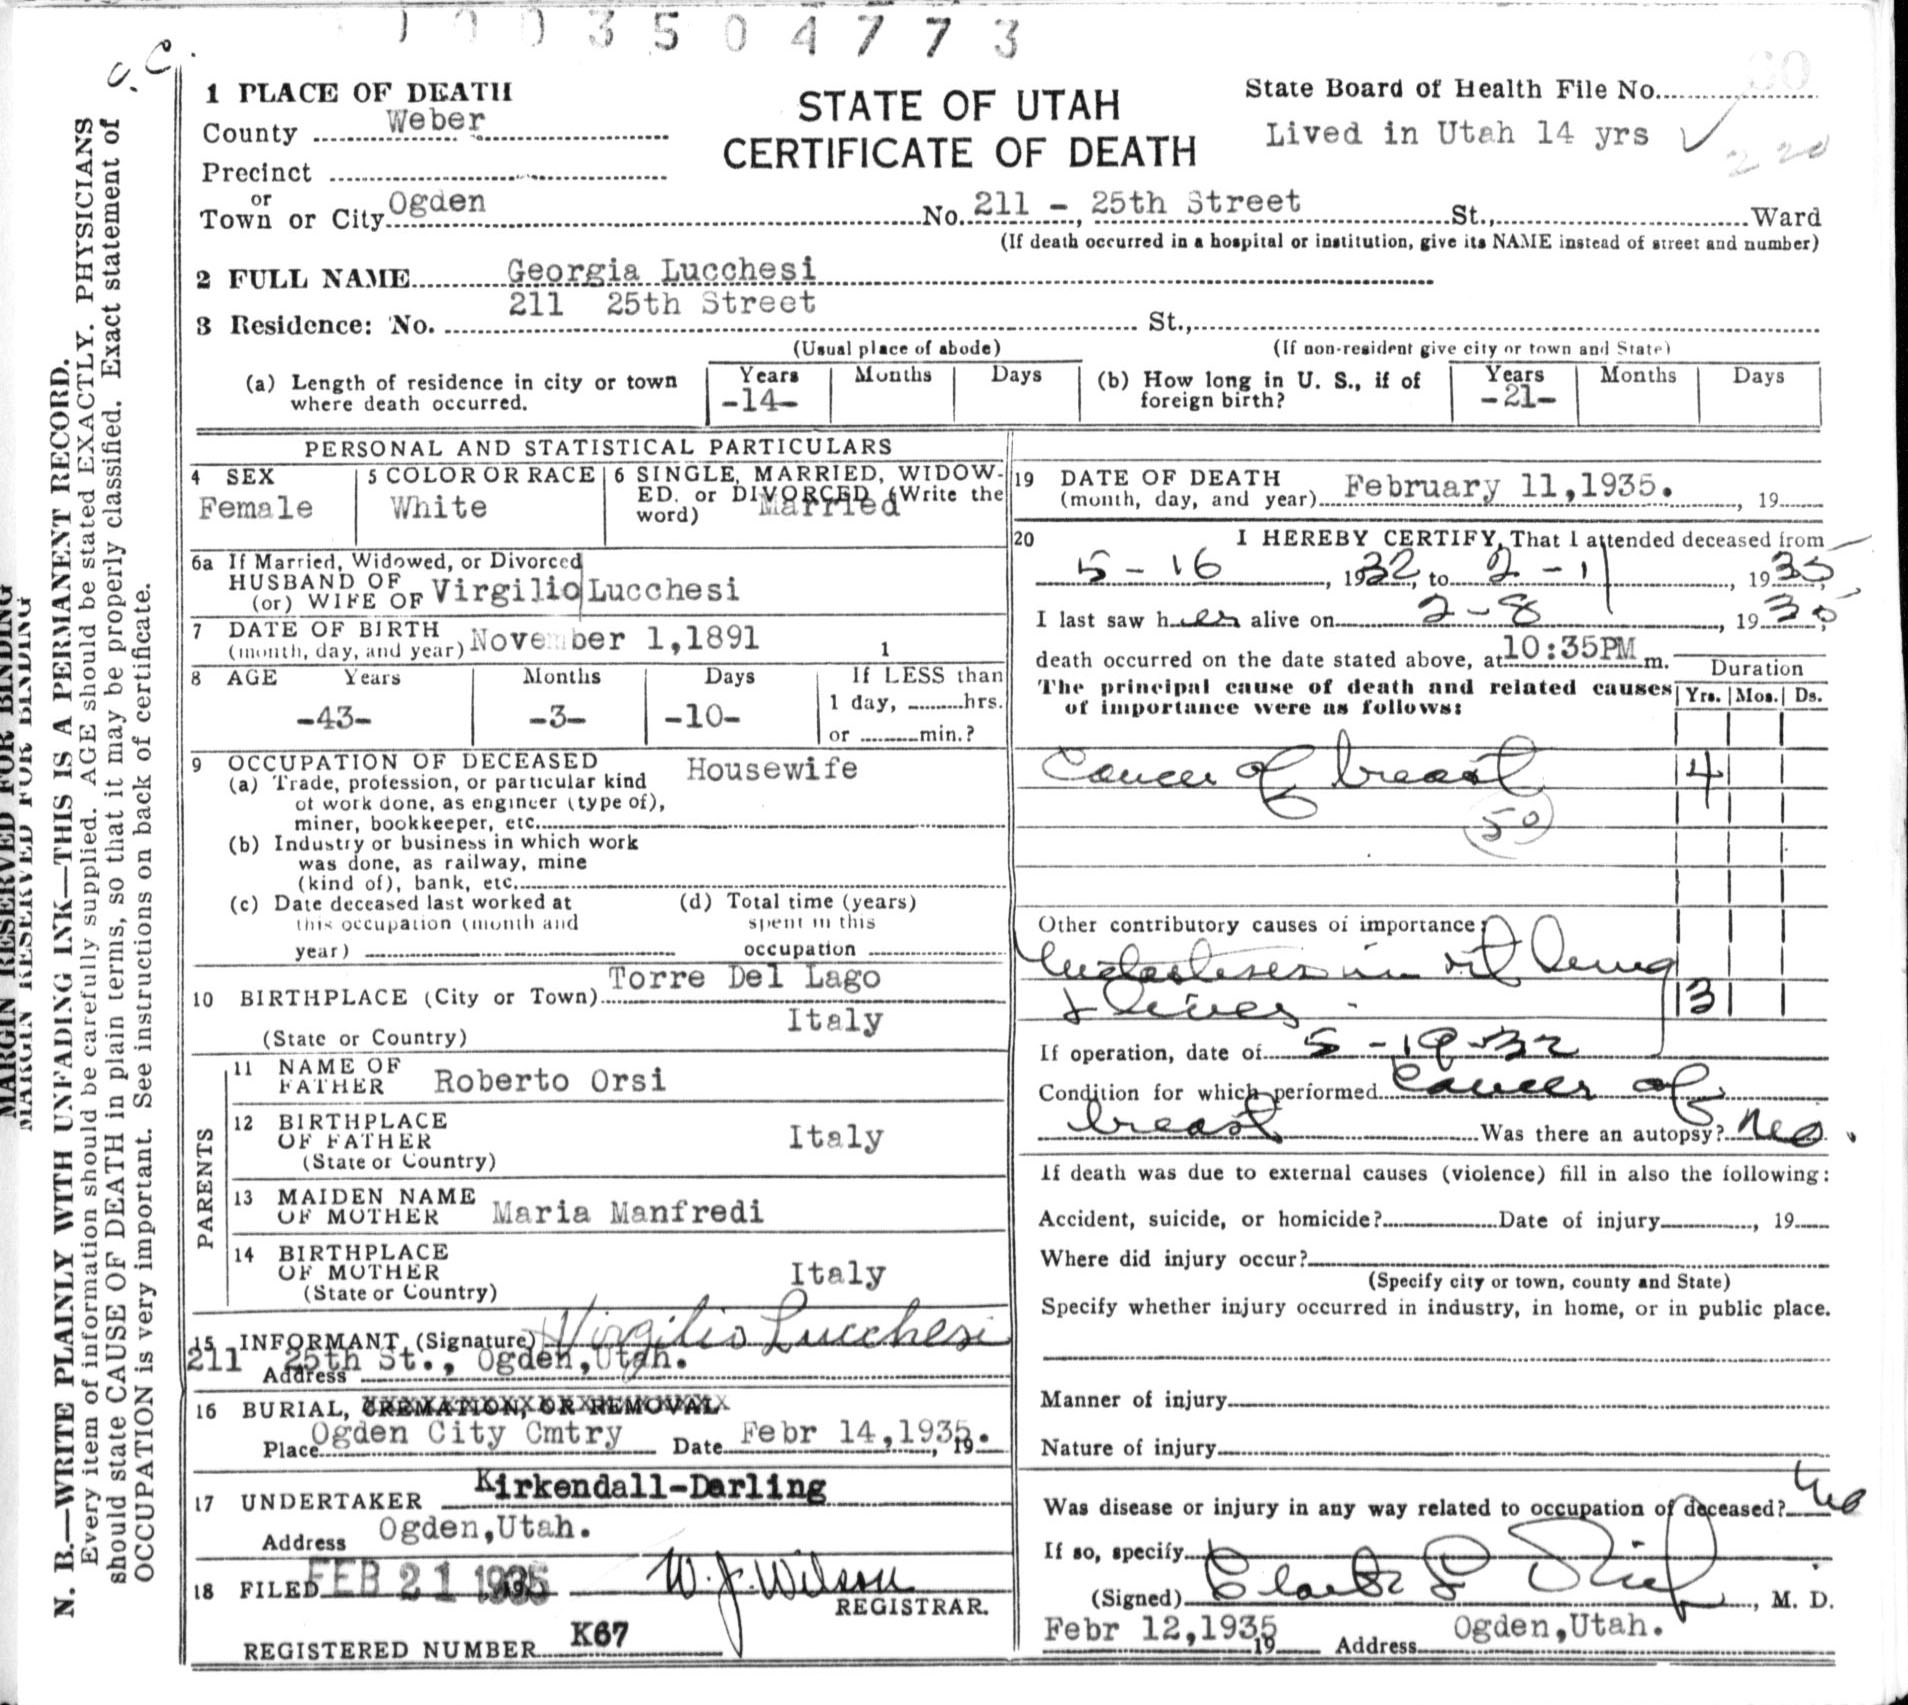 1003504773
C. C.
1 PLACE OF DEATH
County Weber
Precinct
or
Town or City Ogden No. 211 - 25th Street St., Ward
(If death occurred in a hospital or institution, give its NAME instead of street and number)
STATE OF UTAH
CERTIFICATE OF DEATH
State Board of Health File No. 60
Lived in Utah 14 yrs
220
2 FULL NAME Georgia Lucchesi
211 25th Street
3 Residence: No. St.,
(Usual place of abode) (If non-resident give city or town and State)
(a) Length of residence in city or town where death occurred. Years -14- Months Days
(b) How long in U. S., if of foreign birth? Years -21- Months Days
PERSONAL AND STATISTICAL PARTICULARS
4 SEX Female
5 COLOR OR RACE White
6 SINGLE, MARRIED, WIDOW-
ED, or DIVORCED (Write the
word) Married
6a If Married, Widowed, or Divorced
HUSBAND OF
(or) WIFE OF Virgilio Lucchesi
7 DATE OF BIRTH
(month, day, and year) November 1,1891 1
8 AGE Years Months Days If LESS than
-43- -3- -10- 1 day, hrs.
or min.?
9 OCCUPATION OF DECEASED Housewife
(a) Trade, profession, or particular kind
of work done, as engineer (type of),
miner, bookkeeper, etc.
(b) Industry or business in which work
was done, as railway, mine
(kind of), bank, etc.
(c) Date deceased last worked at
this occupation (month and
year)
(d) Total time (years)
spent in this
occupation
10 BIRTHPLACE (City or Town) Torre Del Lago
(State or Country) Italy
PARENTS
11 NAME OF
FATHER Roberto Orsi
12 BIRTHPLACE
OF FATHER Italy
(State or Country)
13 MAIDEN NAME
OF MOTHER Maria Manfredi
14 BIRTHPLACE
OF MOTHER Italy
(State or Country)
15 INFORMANT (Signature) Virgilio Lucchesi
211 25th St., Ogden,Utah.
Address
16 BURIAL, CREMATION, OR REMOVAL
Place Ogden City Cmtry Date Febr 14,1935. 19
17 UNDERTAKER Kirkendall-Darling
Address Ogden,Utah.
18 FILED FEB 21 1935 W. J. Wilson
REGISTRAR.
REGISTERED NUMBER K67
19 DATE OF DEATH
(month, day, and year) February 11,1935. , 19
20 I HEREBY CERTIFY, That I attended deceased from
5 - 16, 1932, to 2 - 11, 1935
I last saw her alive on 2-8, 1935,
death occurred on the date stated above, at 10:35PM m.
The principal cause of death and related causes
of importance were as follows:
Duration
Yrs. Mos. Ds.
Cancer of breast 4
50
Other contributory causes of importance:
Metastases in rt lung
& liver 3
If operation, date of 5-19-32
Condition for which performed Cancer of
breast Was there an autopsy? No.
If death was due to external causes (violence) fill in also the following:
Accident, suicide, or homicide? Date of injury , 19
Where did injury occur?
(Specify city or town, county and State)
Specify whether injury occurred in industry, in home, or in public place.
Manner of injury
Nature of injury
Was disease or injury in any way related to occupation of deceased? No
If so, specify
(Signed) Clark L Rich, M. D.
Febr 12,1935 19 Address Ogden,Utah.
MARGIN RESERVED FOR BINDING
MARGIN RESERVED FOR BINDING
N. B.—WRITE PLAINLY WITH UNFADING INK—THIS IS A PERMANENT RECORD.
Every item of information should be carefully supplied. AGE should be stated EXACTLY. PHYSICIANS
should state CAUSE OF DEATH in plain terms, so that it may be properly classified. Exact statement of
OCCUPATION is very important. See instructions on back of certificate.